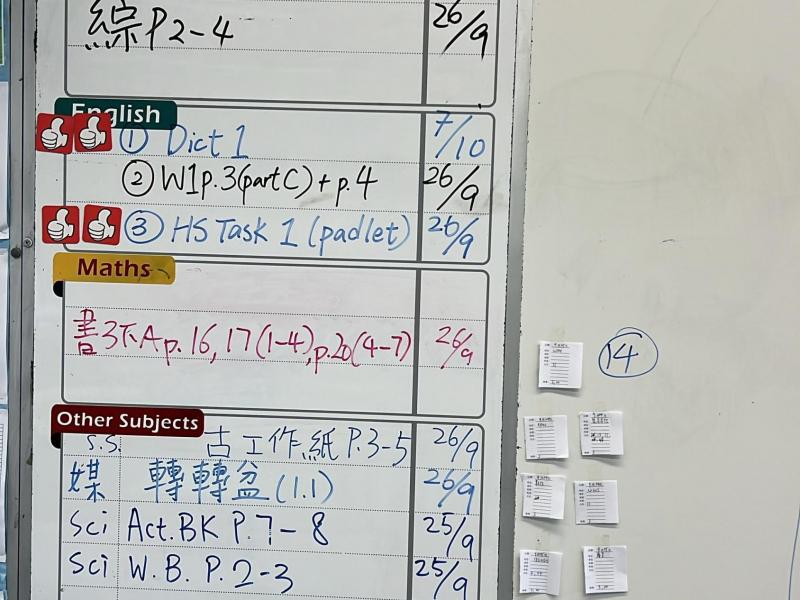 綜 P.2-4 26/9
English
① Dict 1 7/10
② W1p.3(part C) + p.4 26/9
③ HS Task 1 (padlet) 26/9
Maths
書3下A p.16, 17(1-4), p.20(4-7) 26/9
14
Other Subjects
S.S. 古工作紙 P.3-5 26/9
媒 轉轉盆(1.1) 26/9
Sci Act.BK P.7-8 25/9
Sci W.B. P.2-3 25/9